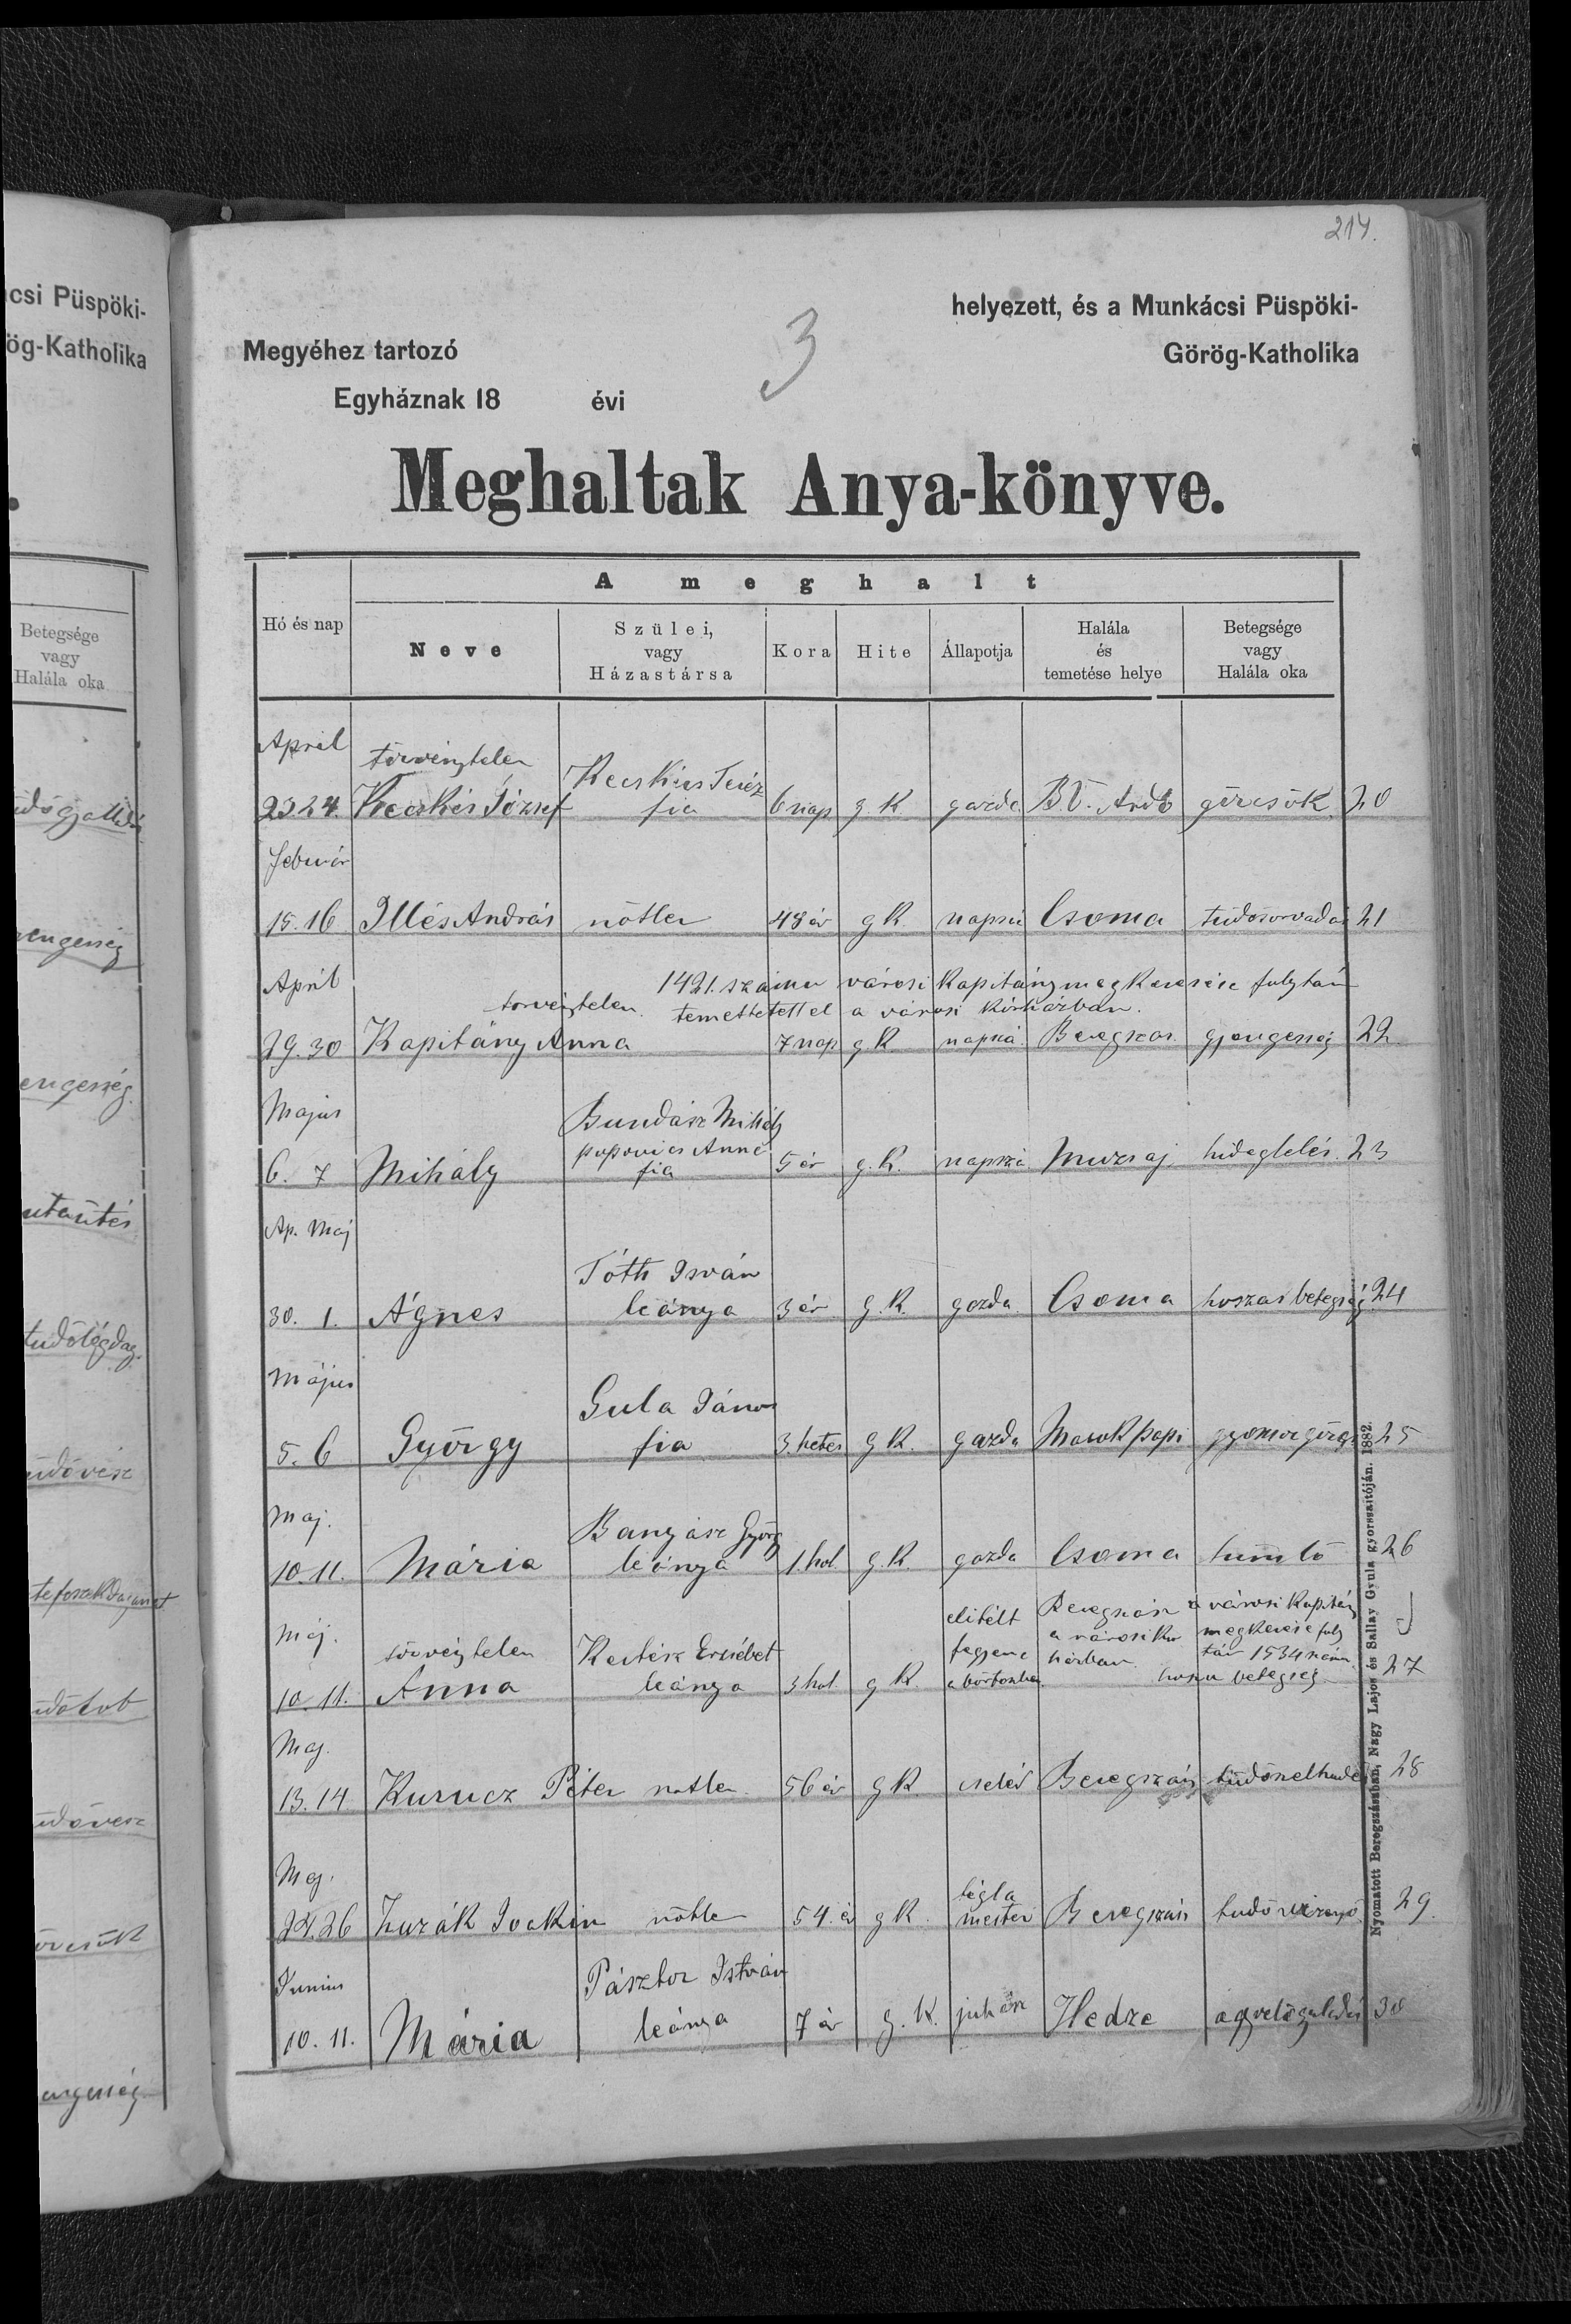 214.
csi Püspöki-
ög-Katholika
helyezett, és a Munkácsi Püspöki-
Megyéhez tartozó
Görög-Katholika
3
Egyháznak 18 évi
Meghaltak Anya-könyve.
A meghalt
Hó és nap
Neve
Szülei,
vagy
Házastársa
Kora
Hite
Állapotja
Halála
és
temetése helye
Betegsége
vagy
Halála oka
Betegsége
vagy
Halála oka
April
törvénytelen
Kecskés Teréz
23 24. Kecskés József fia 6 nap g. K. gazda B.V. Ardó görcsök 20
Február
15. 16 Illés András nőtlen 48 év g K. napszá Csoma tüdősorvadás 21
April
1421. számu városi Kapitány megkeresése folytán
törvénytelen. temettetett el a városi kórházban.
29. 30 Kapitány Anna 7 nap g K. napszá Beregszas gyengeség 22
Majus
Bundász Mihály
popovics Anna
6. 7 Mihály fia 5 év g. K. napszá Muzsaj hideglelés. 23
Ap. Maj
Tóth Isván
30. 1. Ágnes leánya 3 év g. K. gazda Csoma hoszas betegség 24
Május
Gula János
5. 6 György fia 3 hetes g K. gazda Macsk papi gyomorgörcs 25
Maj.
Banyász György
10. 11. Mária leánya 1. hol. g. K. gazda Csoma himlő 26
Máj.
elitélt Beregszász a városi Kapitány
törvénytelen Kertész Erzsébet
fegyenc a városi Kor megkerese foly
házban tán 1534 szám
10. 11. Anna leánya 3 hol. g K. a börtönben hoszu betegség 27
Maj.
13. 14 Kurucz Péter notlen 56 év g K. cseléd Beregszász 28
Maj.
tégla
26 Joakim nőtlen 54. év g K. mester Beregszász 29.
Junius
Pásztor István
10. 11. Mária leánya 7 év g. K. juhász 30
Nyomatott Beregszászban, Nagy Lajos és Sallay Gyula gyorssajtóján. 1882.
engeség